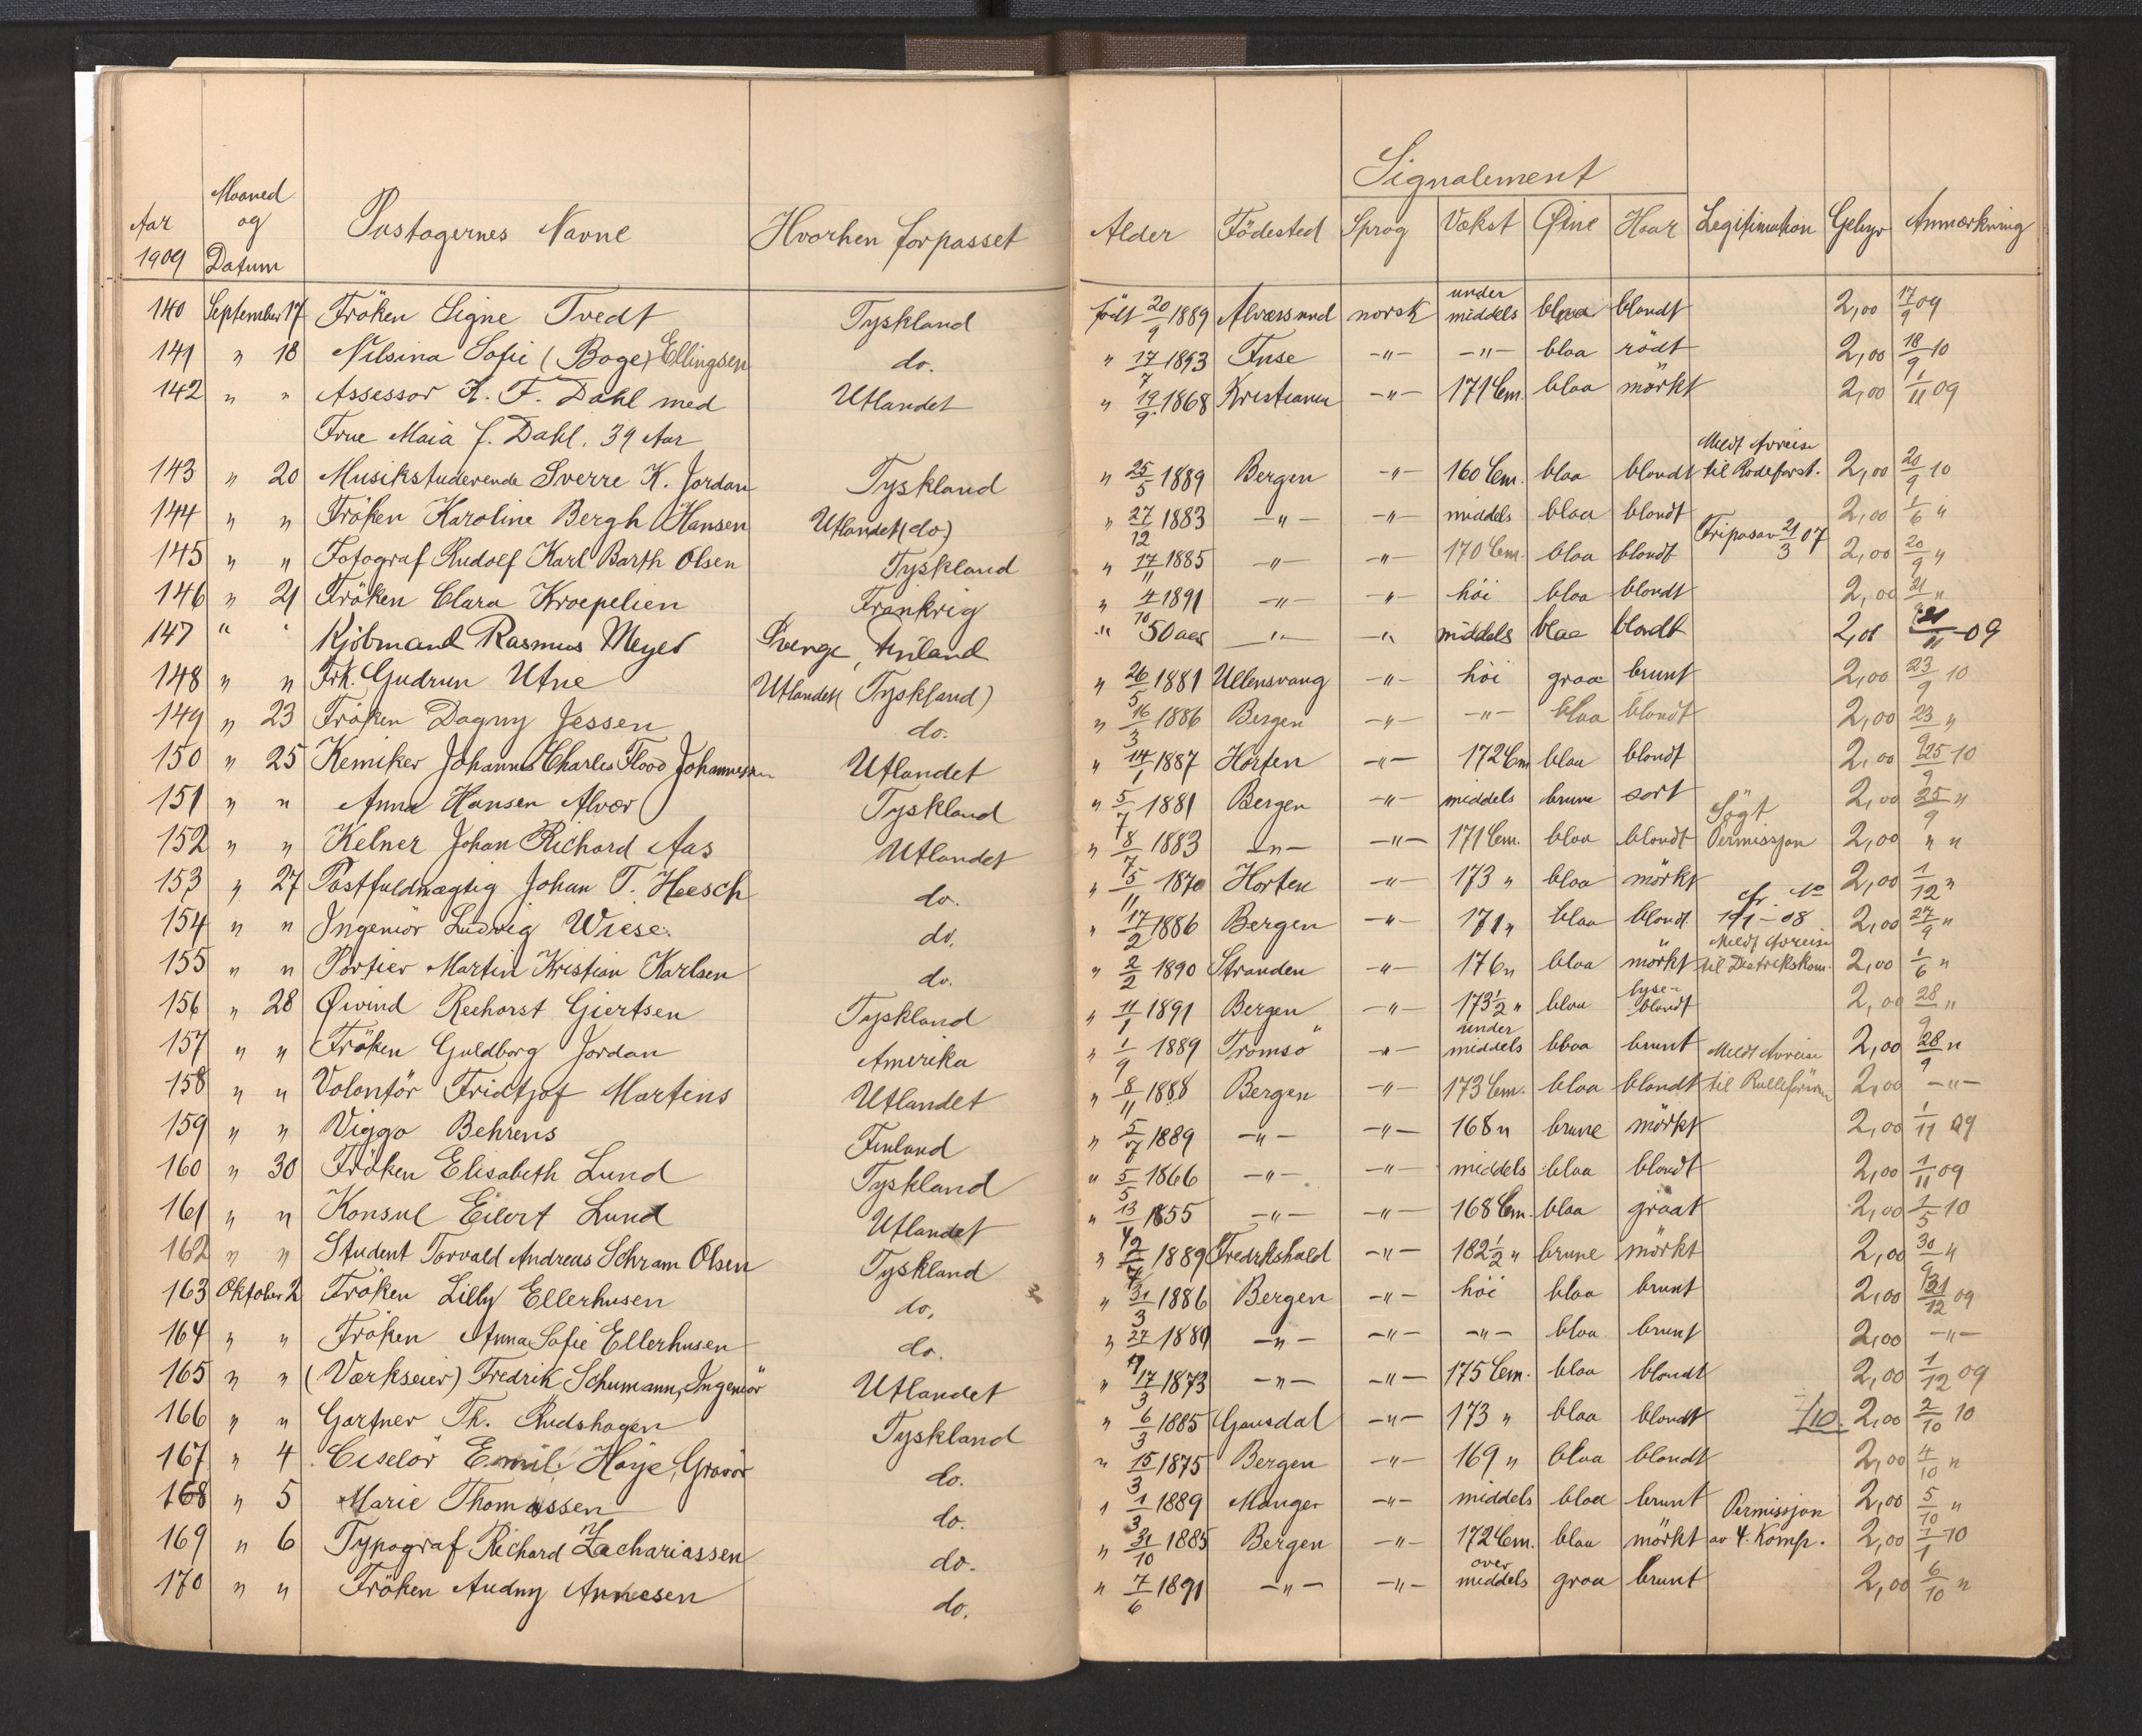 Signalement
Aar 1909 Maaned og Datum Pastagernes Navne Hvorhen forpasset Alder Födested Sprog Vækst Øine Haar Legitimation Gebyr Anmærkning
140 September 17 Fröken Signe Tvedt Tyskland født 20/9 1889 Alværsund norsk under middels blaa blondt 2,00 17/9 09
141 " 18 Nilsina Sofie (Boge) Ellingsen do. " 17/7 1893 Fuse -"- -"- blaa rödt 2,00 18/9 10
142 " " Assessor K. F. Dahl med Utlandet " 19/9 1868 Kristiania -"- 171 Cem. blaa mörkt 2,00 1/11 09
Frue Maia f. Dahl. 39 Aar
143 " 20 Musikstuderende Sverre K. Jordan Tyskland " 25/5 1889 Bergen -"- 160 Cem. blaa blondt Meldt Avreise til Rodeforst. 2,00 20/9 10
144 " " Fröken Karoline Bergh Hansen Utlandet (do) " 27/12 1883 -"- -"- middels blaa blondt 2,00 1/6 "
145 " " Fotograf Rudolf Karl Barth Olsen Tyskland " 17/11 1885 -"- -"- 170 Cem. blaa blondt Fripas av 21/3 07 2,00 20/9 "
146 " 21 Fröken Clara Kroepelien Frankrig " 4/10 1891 -"- -"- höi blaa blondt 2,00 21/9 "
147 " " Kjöbmand Rasmus Meyer Sverge, Finland " 50 aar -"- -"- middels blaa blondt 2,00 21/11 09
148 " " Frk. Gudrun Utne Utlandet (Tyskland) " 26/5 1881 Ullensvang -"- höi graa brunt 2,00 23/9 10
149 " 23 Fröken Dagny Jessen do. " 16/3 1886 Bergen -"- -"- blaa blondt 2,00 23/9 "
150 " 25 Kemiker Johannes Charles Flood Johannessen Utlandet " 14/1 1887 Horten -"- 172 Cem blaa blondt 2,00 25/9 10
151 " " Anna Hansen Alvær Tyskland " 5/7 1881 Bergen -"- middels brune sort 2,00 25/9 "
152 " " Kelner Johan Richard Aas Utlandet " 8/7 1883 -"- -"- 171 Cem. blaa blondt Sögt Permissjon 2,00 " "
153 " 27 Postfuldmægtig Johan T. Heesch do. " 5/11 1870 Horten -"- 173 " blaa mörkt 2,00 1/12 "
154 " " Ingeniör Ludvig Wiese. do. " 17/2 1886 Bergen -"- 171 " blaa blond. cfr. No 191-08 2,00 27/9 "
155 " " Portier Martin Kristian Karlsen do. " 2/2 1890 Stranden -"- 176 " blaa mörkt Meldt Avreise til Distrikskom. 2,00 1/6 "
156 " 28 Øivind Reehorst Giertsen Tyskland " 11/1 1891 Bergen -"- 173½ " blaa lyse-blondt 2,00 28/9 "
157 " " Fröken Guldborg Jordan Amerika " 1/9 1889 Tromsö -"- under middels blaa brunt 2,00 28/9 "
158 " " Volontör Fridtjof Martens Utlandet " 8/11 1888 Bergen -"- 173 Cem. blaa blondt Meldt Avreise til Rulleförer 2,00 -"-
159 " " Viggo Behrens Finland " 5/7 1889 -"- -"- 168 " brune mörkt 2,00 1/11 09
160 " 30 Fröken Elisabeth Lund Tyskland " 5/5 1866 -"- -"- middels blaa blondt 2,00 1/11 09
161 " " Konsul Eilert Lund Utlandet " 13/4 1855 -"- -"- 168 Cem. blaa graat 2,00 1/5 10
162 " " Student Torvald Andreas Schram Olsen Tyskland " 1889 Fredrkshald -"- 182½ " brune mörkt 2,00 30/9 "
163 Oktober 2 Fröken Lilly Ellerhusen do. " 31/3 1886 Bergen -"- höi blaa brunt 2,00 31/12 09
164 " " Fröken Anna Sofie Ellerhusen do. " 27/9 1880 -"- -"- -"- blaa brunt 2,00 -"-
165 " " (Værkseier) Fredrik Schumann, Ingeniör Utlandet " 17/3 1873 -"- -"- 175 Cem. blaa blondt 2,00 1/12 09
166 " " Gartner Th. Rudshagen Tyskland " 6/3 1885 Gausdal -"- 173 " blaa blondt 1/10. 2,00 2/10 10
167 " 4 Ciselör Emil Höye, Gravör do. " 15/3 1875 Bergen -"- 169 " blaa blondt 2,00 4/10 "
168 " 5 Marie Thomassen do. " 1/3 1889 Manger -"- middels blaa brunt 2,00 5/10 "
169 " 6 Typograf Richard Zachariassen do. " 31/10 1885 Bergen -"- 172 Cem. blaa mörkt Permissjon av 4. Komp. 2,00 1/1 10
170 " " Fröken Audny Arnesen do. " 7/6 1891 -"- -"- over middels graa brunt 2,00 6/10 "